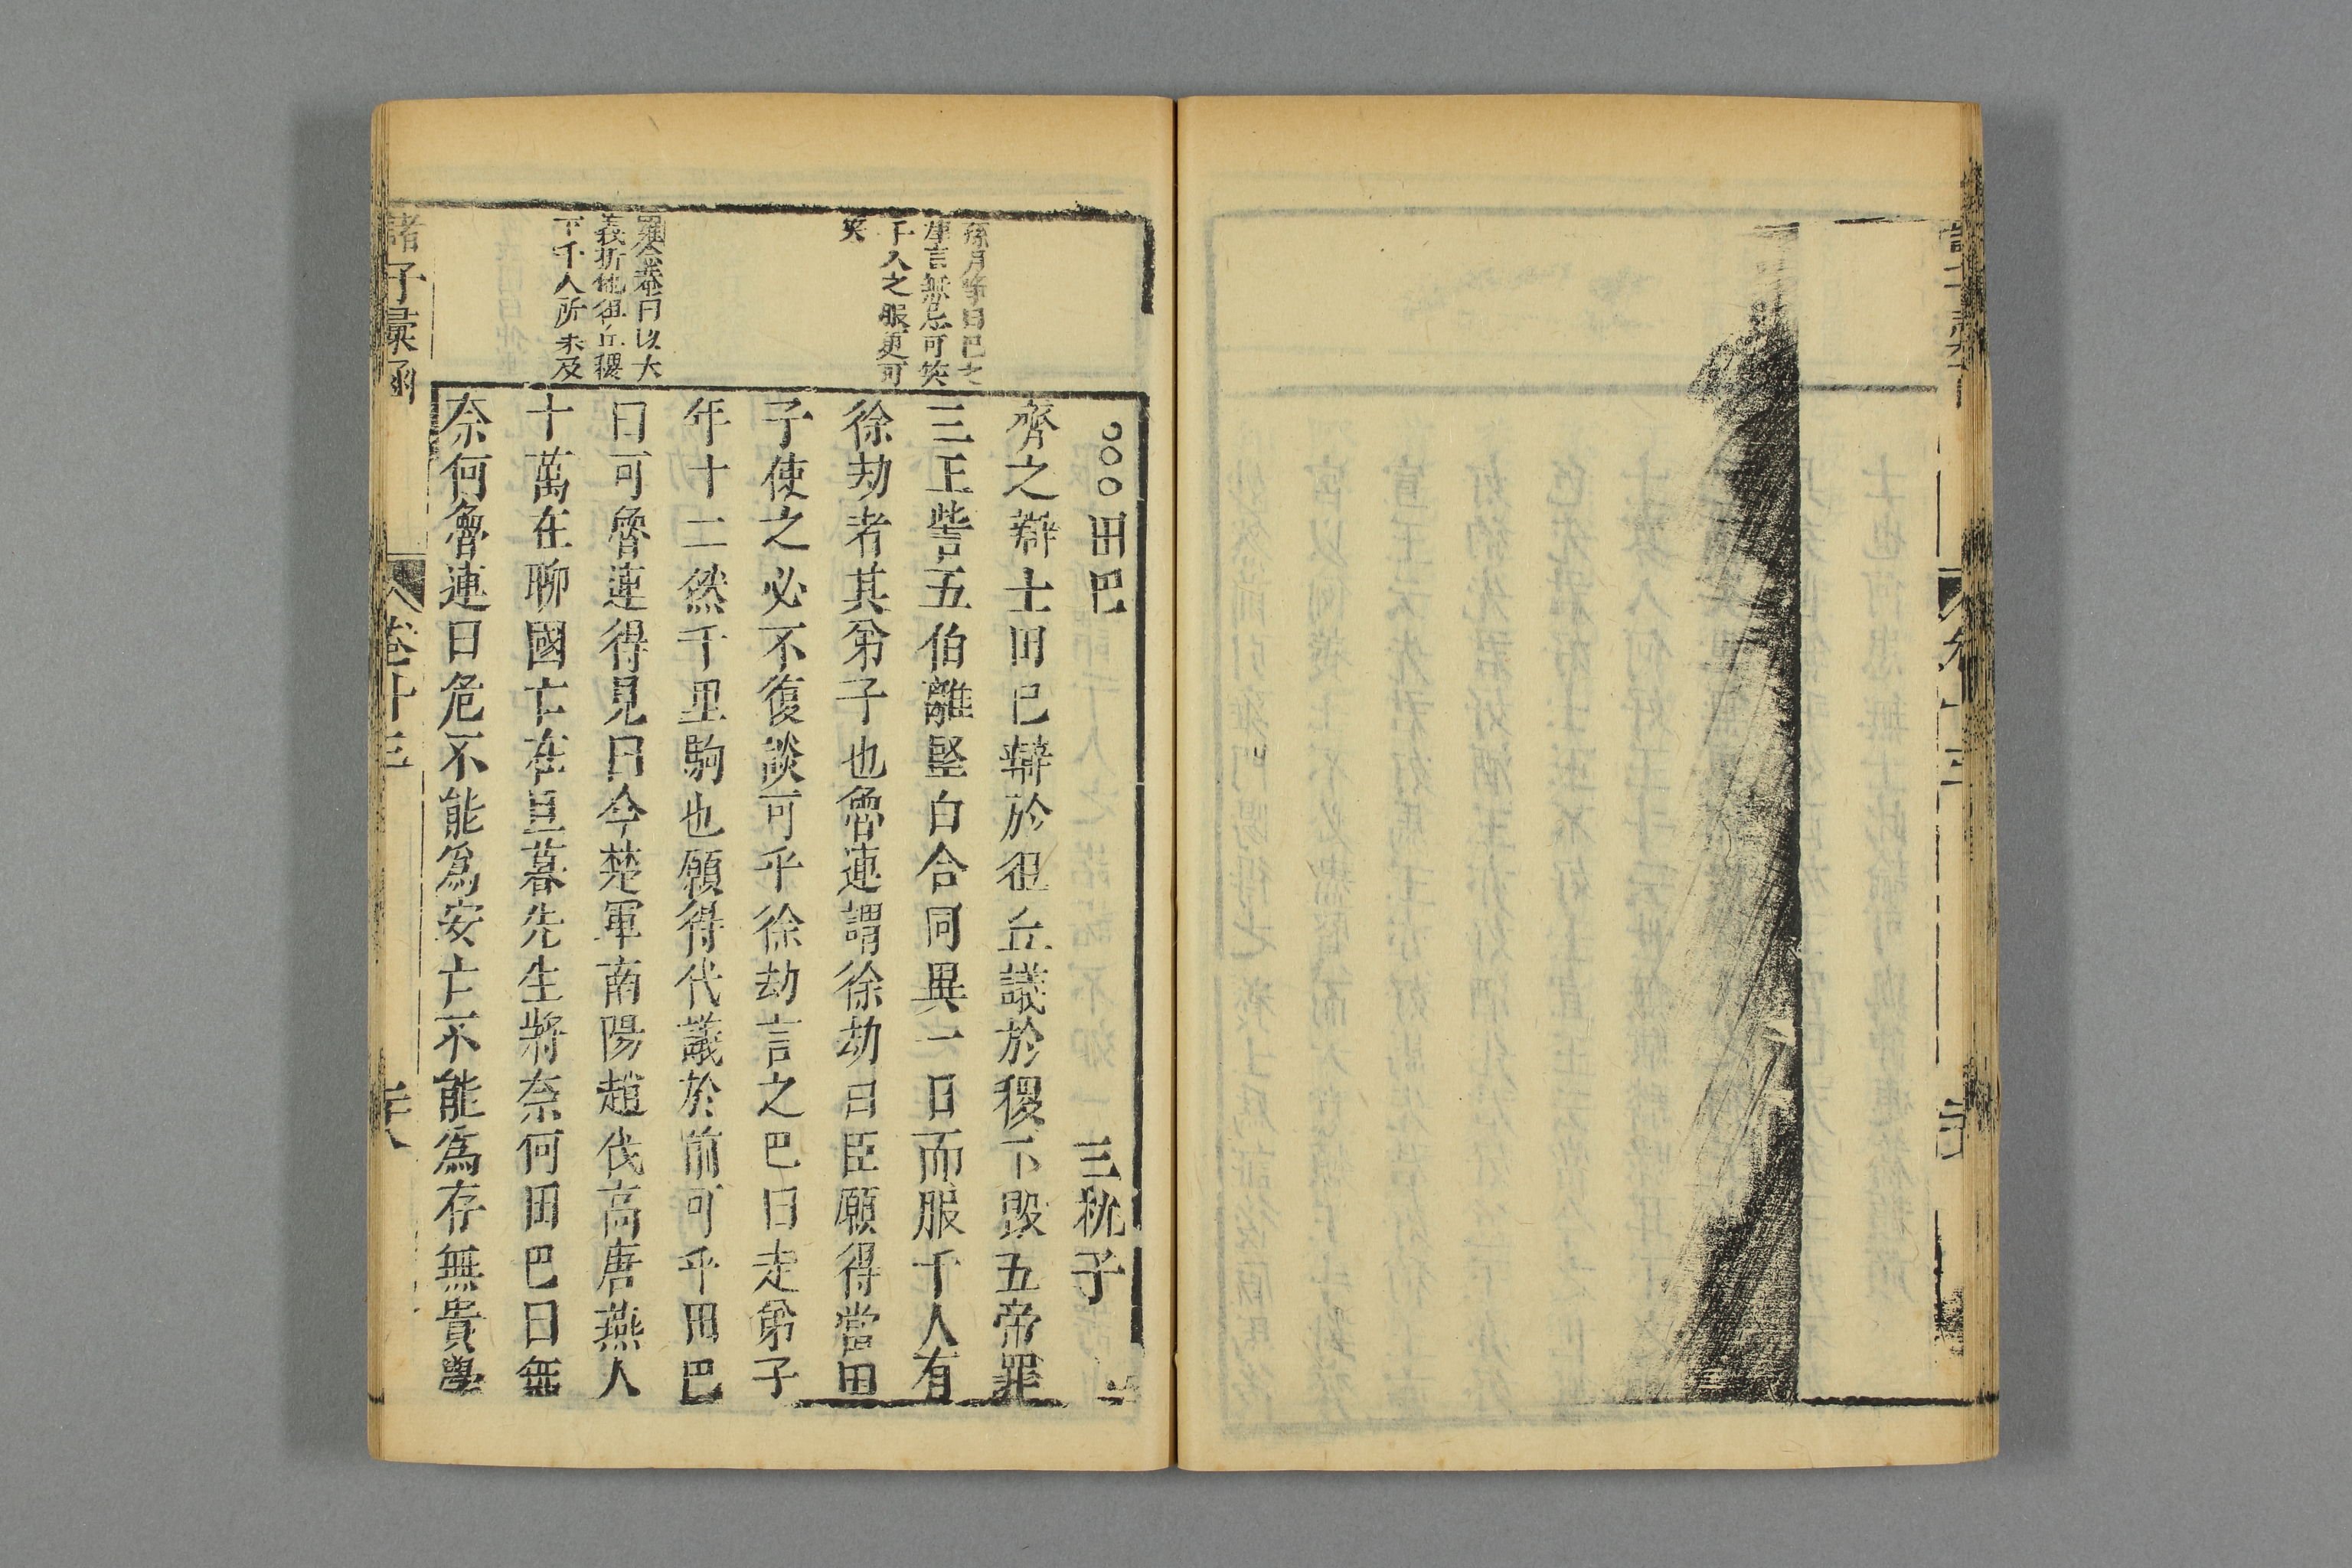 田巴 三𥝤子
齊之辯士田巴辯於徂丘議於稷下毀五帝罪
三王訾五伯離堅白合同異一日而服千人有
徐劫者其弟子也魯連謂徐劫曰臣願得當田
子使之必不復談可乎徐劫言之巴曰走弟子
年十二然千里駒也願得代議於前可乎田巴
曰可魯連得見曰今楚軍南陽趙伐高唐燕人
十萬在聊國亡在旦暮先生將奈何田巴曰無
奈何魯連曰危不能爲安亡不能爲存無貴學
孫月峰曰巴之
庫言無忌可笑
千人之服更可
笑
羅念菴曰以大
義折他徂丘稷
下千人所未及
諸子彙函
卷十三